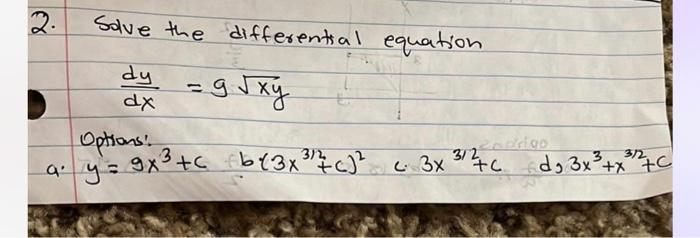 2. Solve the differential equation
dy/dx = 9√xy
Options:
a. y = 9x³+c b. (3x^3/2+c)² c. 3x^3/2+c d, 3x³+x^3/2+c